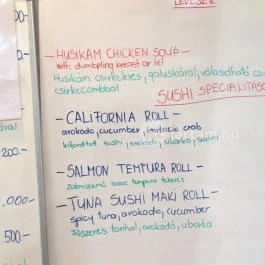 LEVESEK
- HUSIKAM CHICKEN SOUP -
with dumpling breast or leg
Husikám csirkeleves, galuskával, választható csi
csirkecombbal
SUSHI SPECIALITÁSO
- CALIFORNIA ROLL -
avokado, cucumber, imitacio crab
kifordított sushi, avokádó, uborka, surimi
200.-
- SALMON TEMPURA ROLL -
lazac tempura tekercs
.000.-
- TUNA SUSHI MAKI ROLL -
spicy tuna, avokado, cucumber
.500.-
fűszeres tonhal, avokádó, uborka